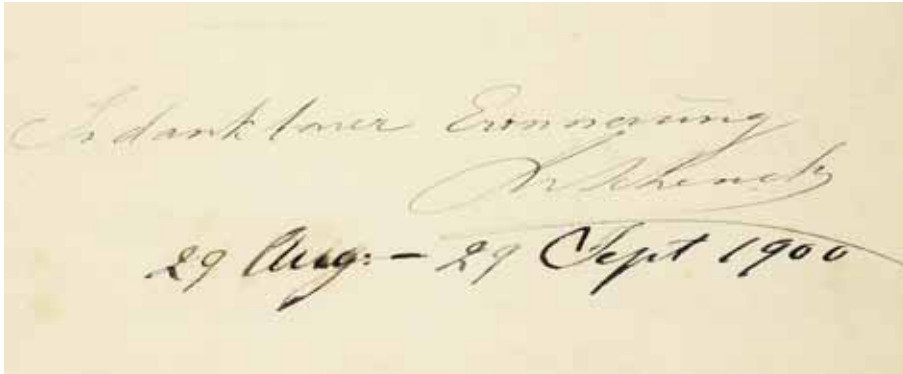 In dankbarer Erinnerung
Dr Schenck
29 Aug: - 29 Sept 1900